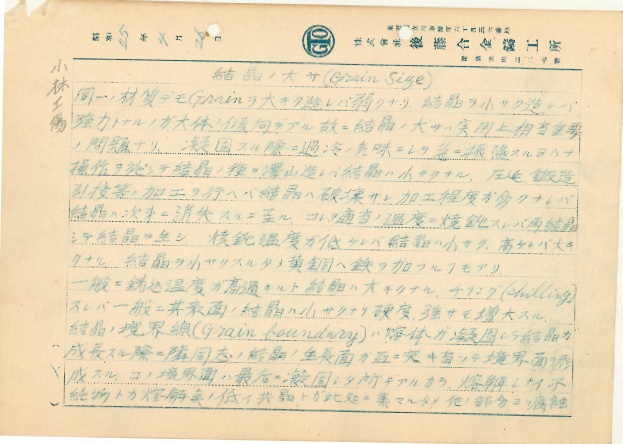 昭和 25 年 4 月 26 日
GTO
株式會社 後藤合金鑄工所
小林工場
結晶ノ大サ(Grain Size)
同一ノ材質デモGrainヲ大キク造レバ弱クナリ、結晶ヲ小サク造レバ
強力トナルノガ大体ノ傾向デアル故ニ結晶ノ大サハ実用上相当重要
ノ問題ナリ、凝固スル際ニ過冷ノ気味ニシテ急ニ振盪スルヨウナ
操作ヲ施シテ結晶ノ種ヲ澤山造レバ結晶ハ小サクナル、圧延 鍛造
引抜等ノ加工ヲ行ヘバ結晶ハ破壊サレ加工程度ガ多クナレバ
結晶ハ次第ニ消失スルニ至ル、コレヲ適当ノ温度ニ焼鈍スレバ再結晶
シテ結晶ヲ生シ、焼鈍温度ガ低ケレバ結晶ハ小サク、高ケレバ大キ
クナル、結晶ヲ小サクスルタメ黄銅ヘ鉄ヲ加フルコモアリ、
一般ニ鋳込温度ガ高過キルト結晶ハ大キクナル、チリング(chilling)
スレバ一般ニ其表面ノ結晶ハ小サクナリ硬度、強サモ増大スル、
結晶ノ境界線(Grain boundary)ハ熔体ガ凝固シテ結晶ガ
成長スル際ニ隣同志ノ結晶ノ生長面ガ互ニ突キ当ツテ境界面ヲ形
成スル、コノ境界面ハ最后ニ凝固シタ所デアルカラ、熔解シナイ不
純物トカ熔解点ノ低イ共晶トガ此処ニ集マルタメ他ノ部分ヨリ腐蝕